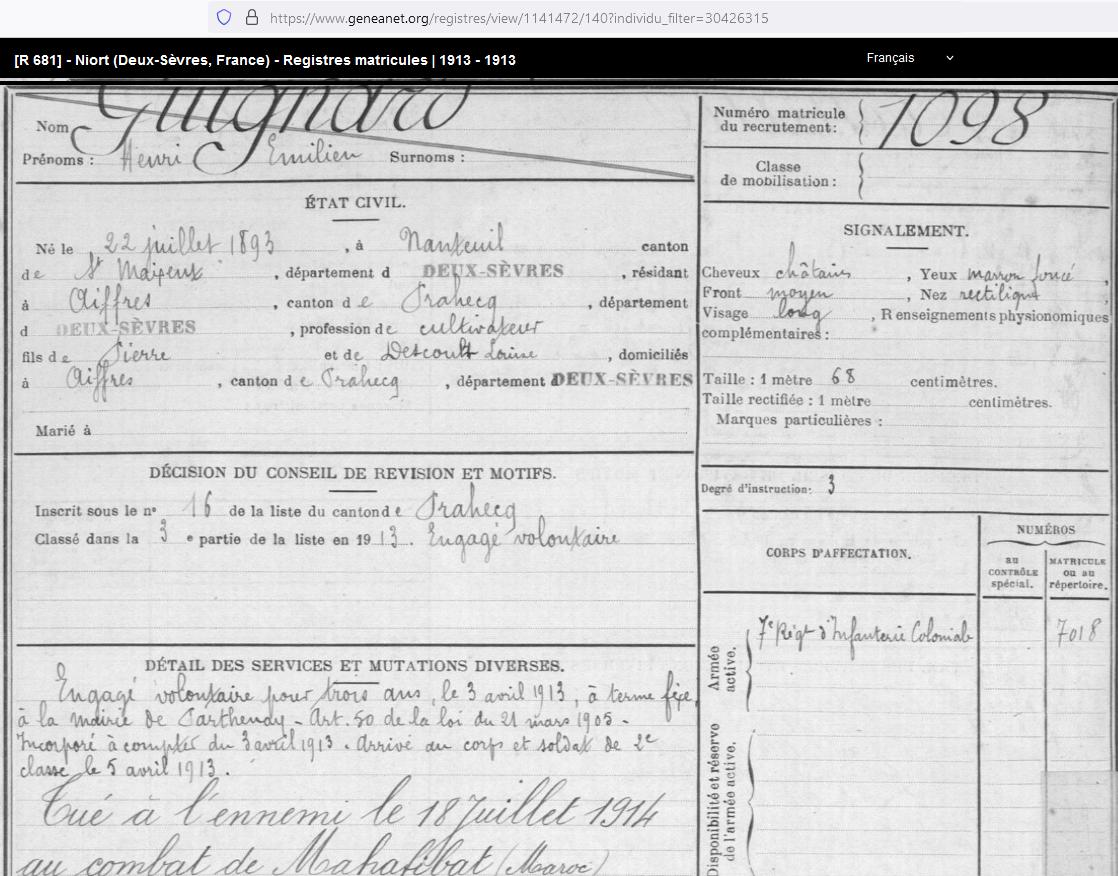 https://www.geneanet.org/registres/view/1141472/140?individu_filter=30426315
[R 681] - Niort (Deux-Sèvres, France) - Registres matricules | 1913 - 1913
Français
Nom Guignard
Prénoms : Henri Emilien Surnoms :
Numéro matricule
du recrutement : 1098
Classe
de mobilisation :
ÉTAT CIVIL.
Né le 22 juillet 1893, à Nanteuil canton
de St Maixent, département d DEUX-SÈVRES, résidant
à Aiffres, canton de Prahecq, département
d DEUX-SÈVRES, profession de cultivateur
fils de Pierre et de Descoult Louise, domiciliés
à Aiffres, canton de Prahecq, département DEUX-SÈVRES
Marié à
SIGNALEMENT.
Cheveux châtains, Yeux marron foncé,
Front moyen, Nez rectiligne
Visage long, Renseignements physionomiques
complémentaires :
Taille : 1 mètre 68 centimètres.
Taille rectifiée : 1 mètre centimètres.
Marques particulières :
DÉCISION DU CONSEIL DE REVISION ET MOTIFS.
Inscrit sous le nº 16 de la liste du canton de Prahecq
Classé dans la 3 e partie de la liste en 1913. Engagé volontaire
Degré d'instruction : 3
CORPS D'AFFECTATION.
NUMÉROS
au
CONTRÔLE
spécial.
MATRICULE
ou au
répertoire.
Armée
active.
7e Régt d'Infanterie Coloniale 7018
Disponibilité et réserve
de l'armée active.
DÉTAIL DES SERVICES ET MUTATIONS DIVERSES.
Engagé volontaire pour trois ans, le 3 avril 1913, à terme fixe,
à la mairie de Parthenay - Art. 50 de la loi du 21 mars 1905 -
Incorporé à compter du 3 avril 1913. Arrivé au corps et soldat de 2e
classe le 5 avril 1913.
Tué à l'ennemi le 18 Juillet 1914
au combat de (Maroc)